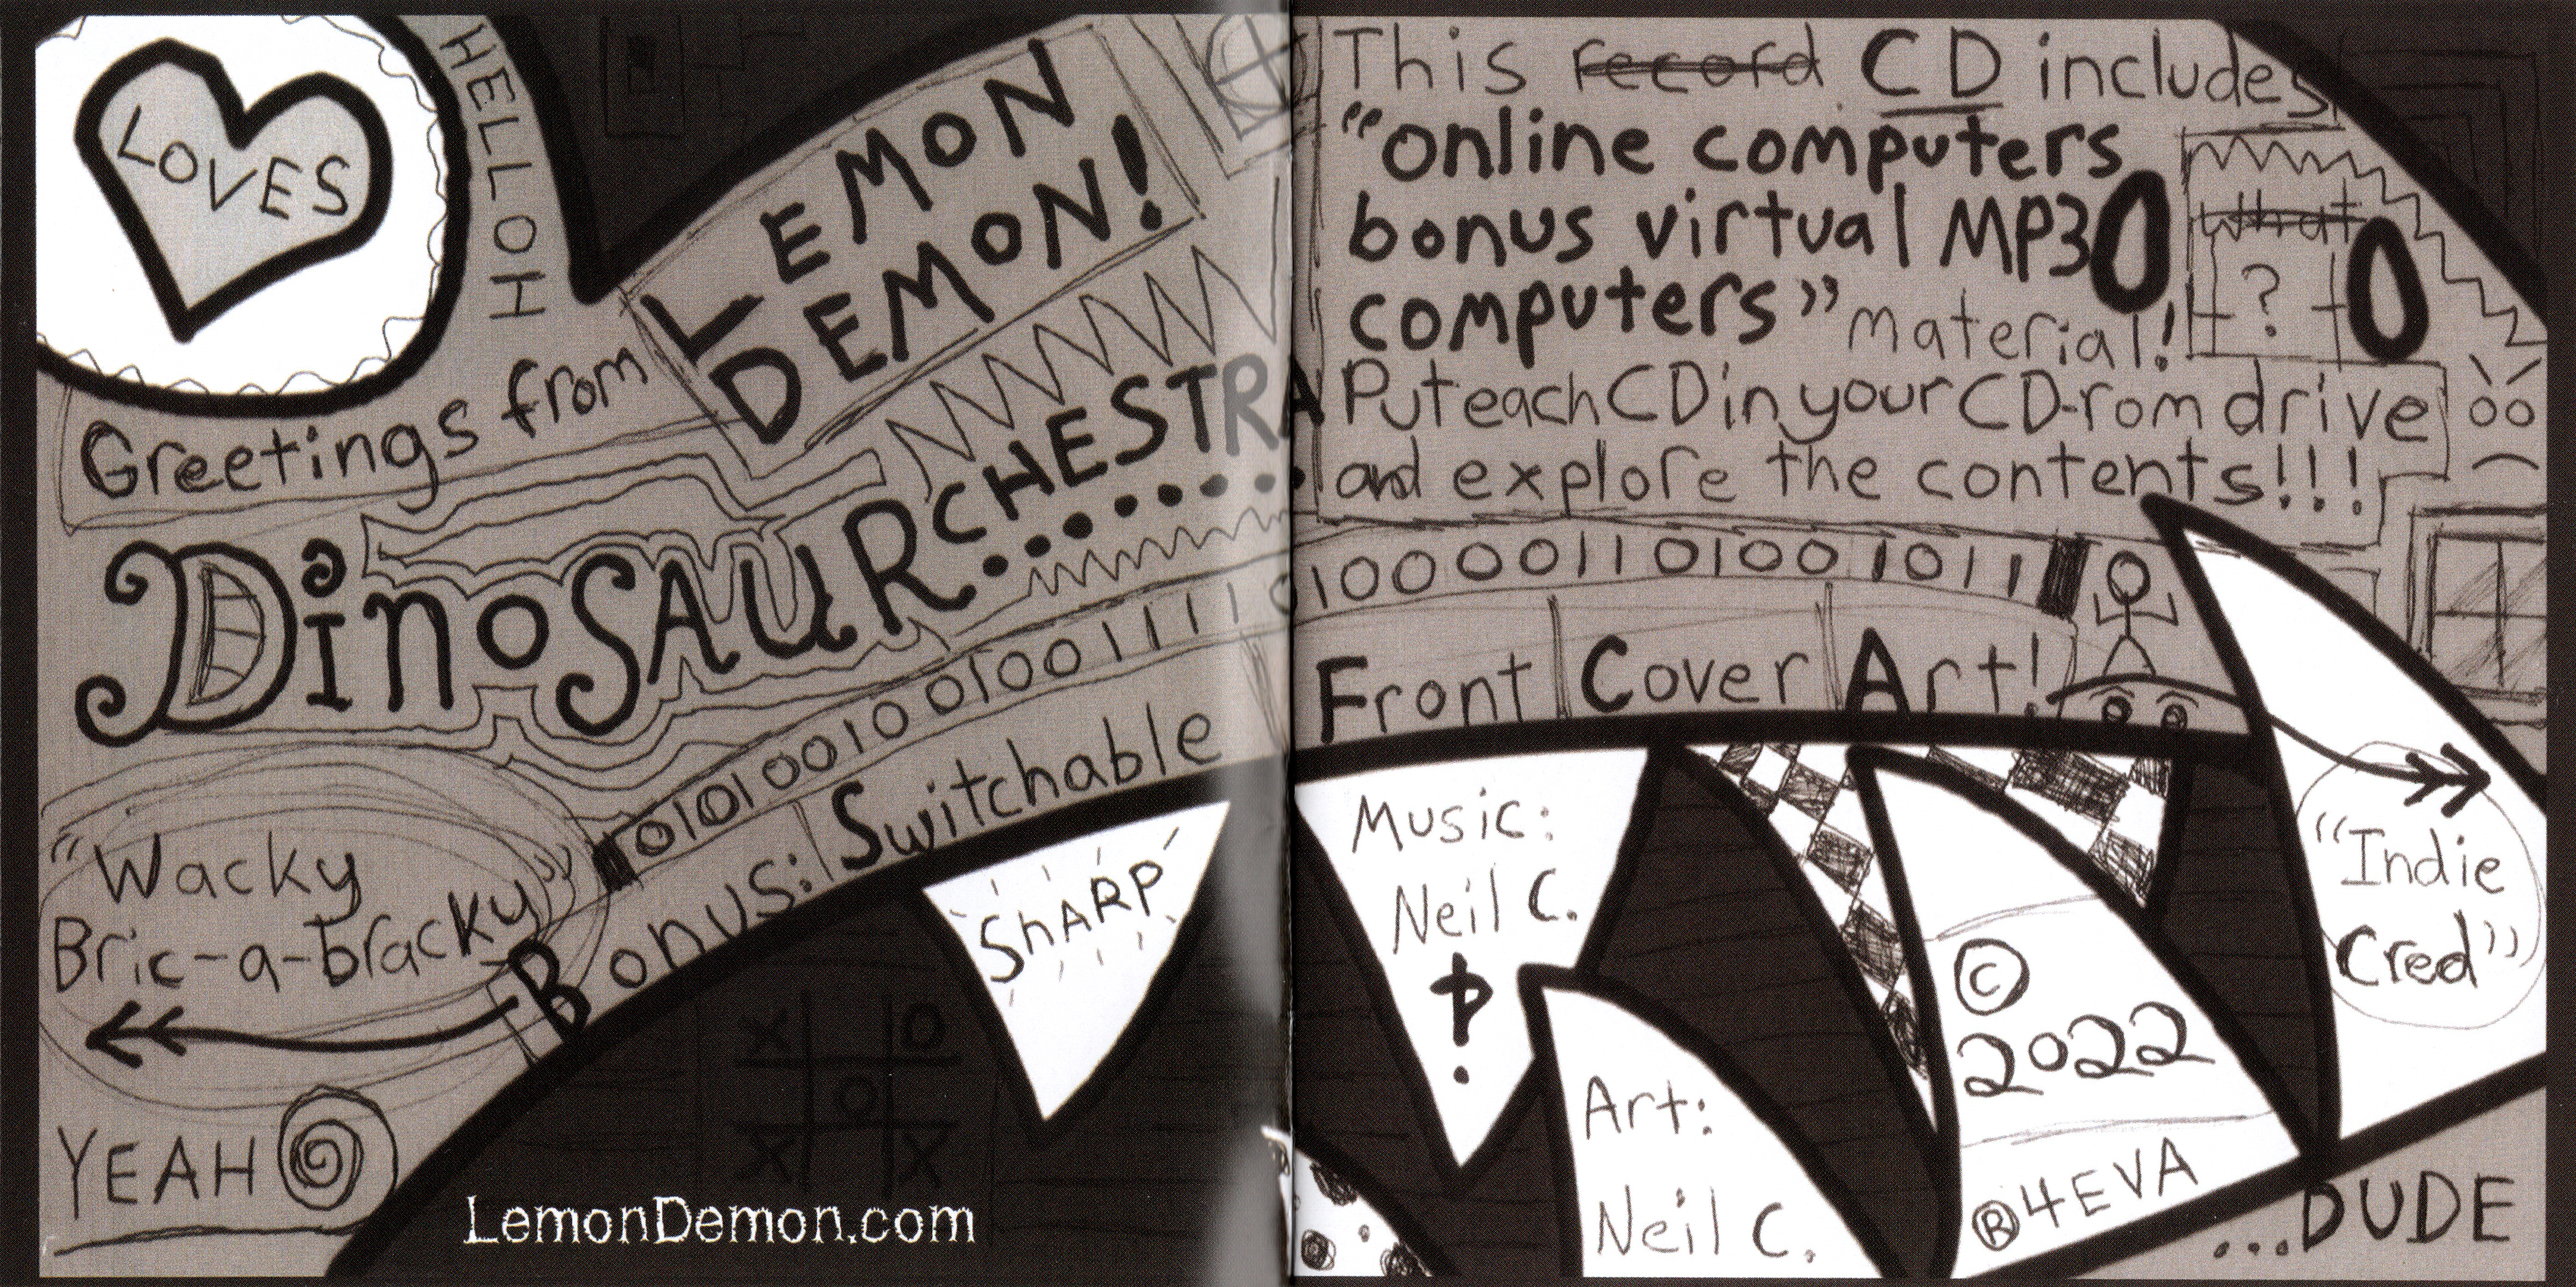 LOVES
HELLOH
Greetings from
LEMON
DEMON!
DinoSAURCHESTRA
"Wacky
Bric-a-bracky"
YEAH
Bonus: Switchable Front Cover Art!
SHARP
X O
O
X X
LemonDemon.com
This record CD includes
"online computers
bonus virtual MP3
computers" material!
what
?
Put each CD in your CD-rom drive
and explore the contents!!!
1000011010010111
Music:
Neil C.
Art:
Neil C.
© 2022
® 4EVA
"Indie
Cred"
...DUDE